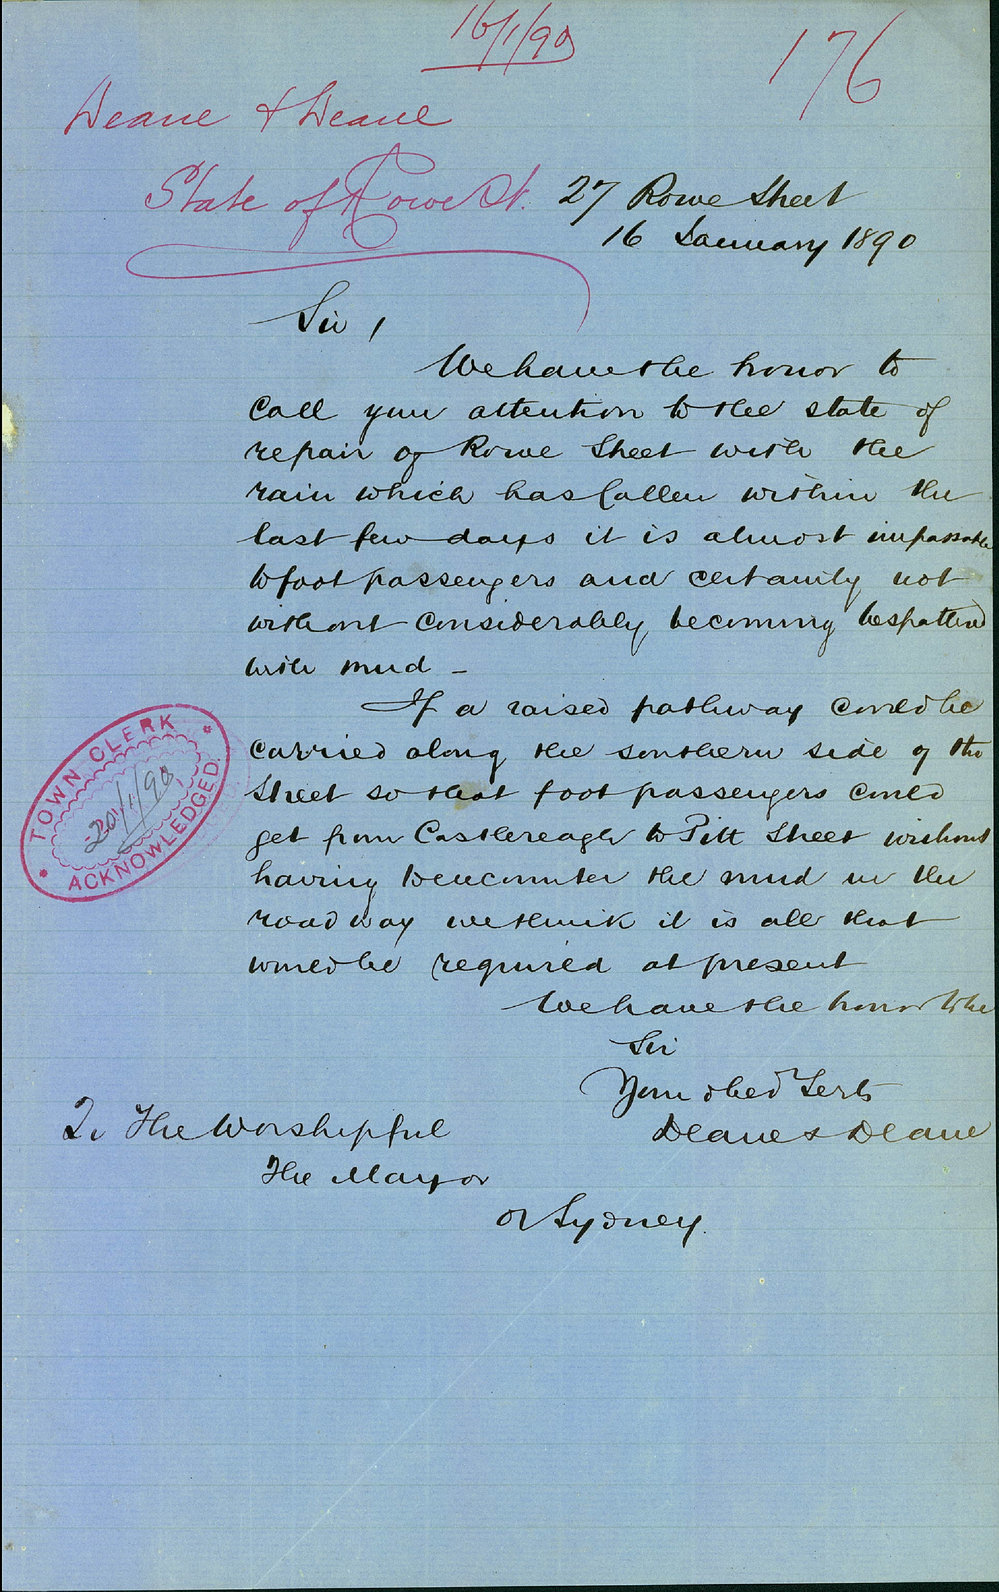 16/1/90
176
Deane & Deane
State of Rowe St.
27 Rowe Street
16 January 1890
Sir,
We have the honor to
call your attention to the state of
repair of Rowe Street with the
rain which has fallen within the
last few days it is almost impassable
to foot passengers and certainly not
without considerably becoming bespattered
with mud -
If a raised pathway could be
carried along the southern side of the
Street so that foot passengers could
get from Castlereagh to Pitt Street without
having to encounter the mud in the
roadway we think it is all that
would be required at present
We have the honor to be
Sir
Your obed Servts
Deane & Deane
To The Worshipful
The Mayor
of Sydney.
TOWN CLERK
20/1/90
ACKNOWLEDGED.